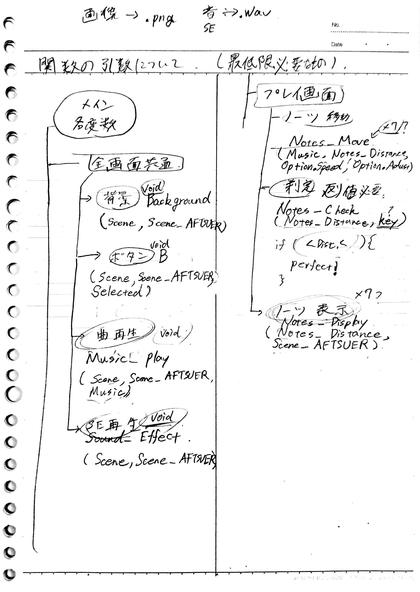 画像→.png 音→.wav
SE
No.
Date
関数の引数について (最低限必要なもの)
メイン
各変数
全画面共通
背景 void Background
(Scene, Scene_AFTSUER)
ボタン void B
(Scene, Scene_AFTSUER,
Selected)
曲再生 void
Music_play
(Scene, Scene_AFTSUER,
Music)
SE再生 void
Sound_Effect
(Scene, Scene_AFTSUER)
プレイ画面
ノーツ 移動
×7?
Notes_Move
(Music, Notes_Distance,
Option.Speed, Option.Adust)
判定 返り値必要
Notes_Check ?
(Notes_Distance, key)
if ( <Dist.< ){
perfect;
}
ノーツ 表示 ×7?
Notes_Display
(Notes_Distance,
Scene_AFTSUER)